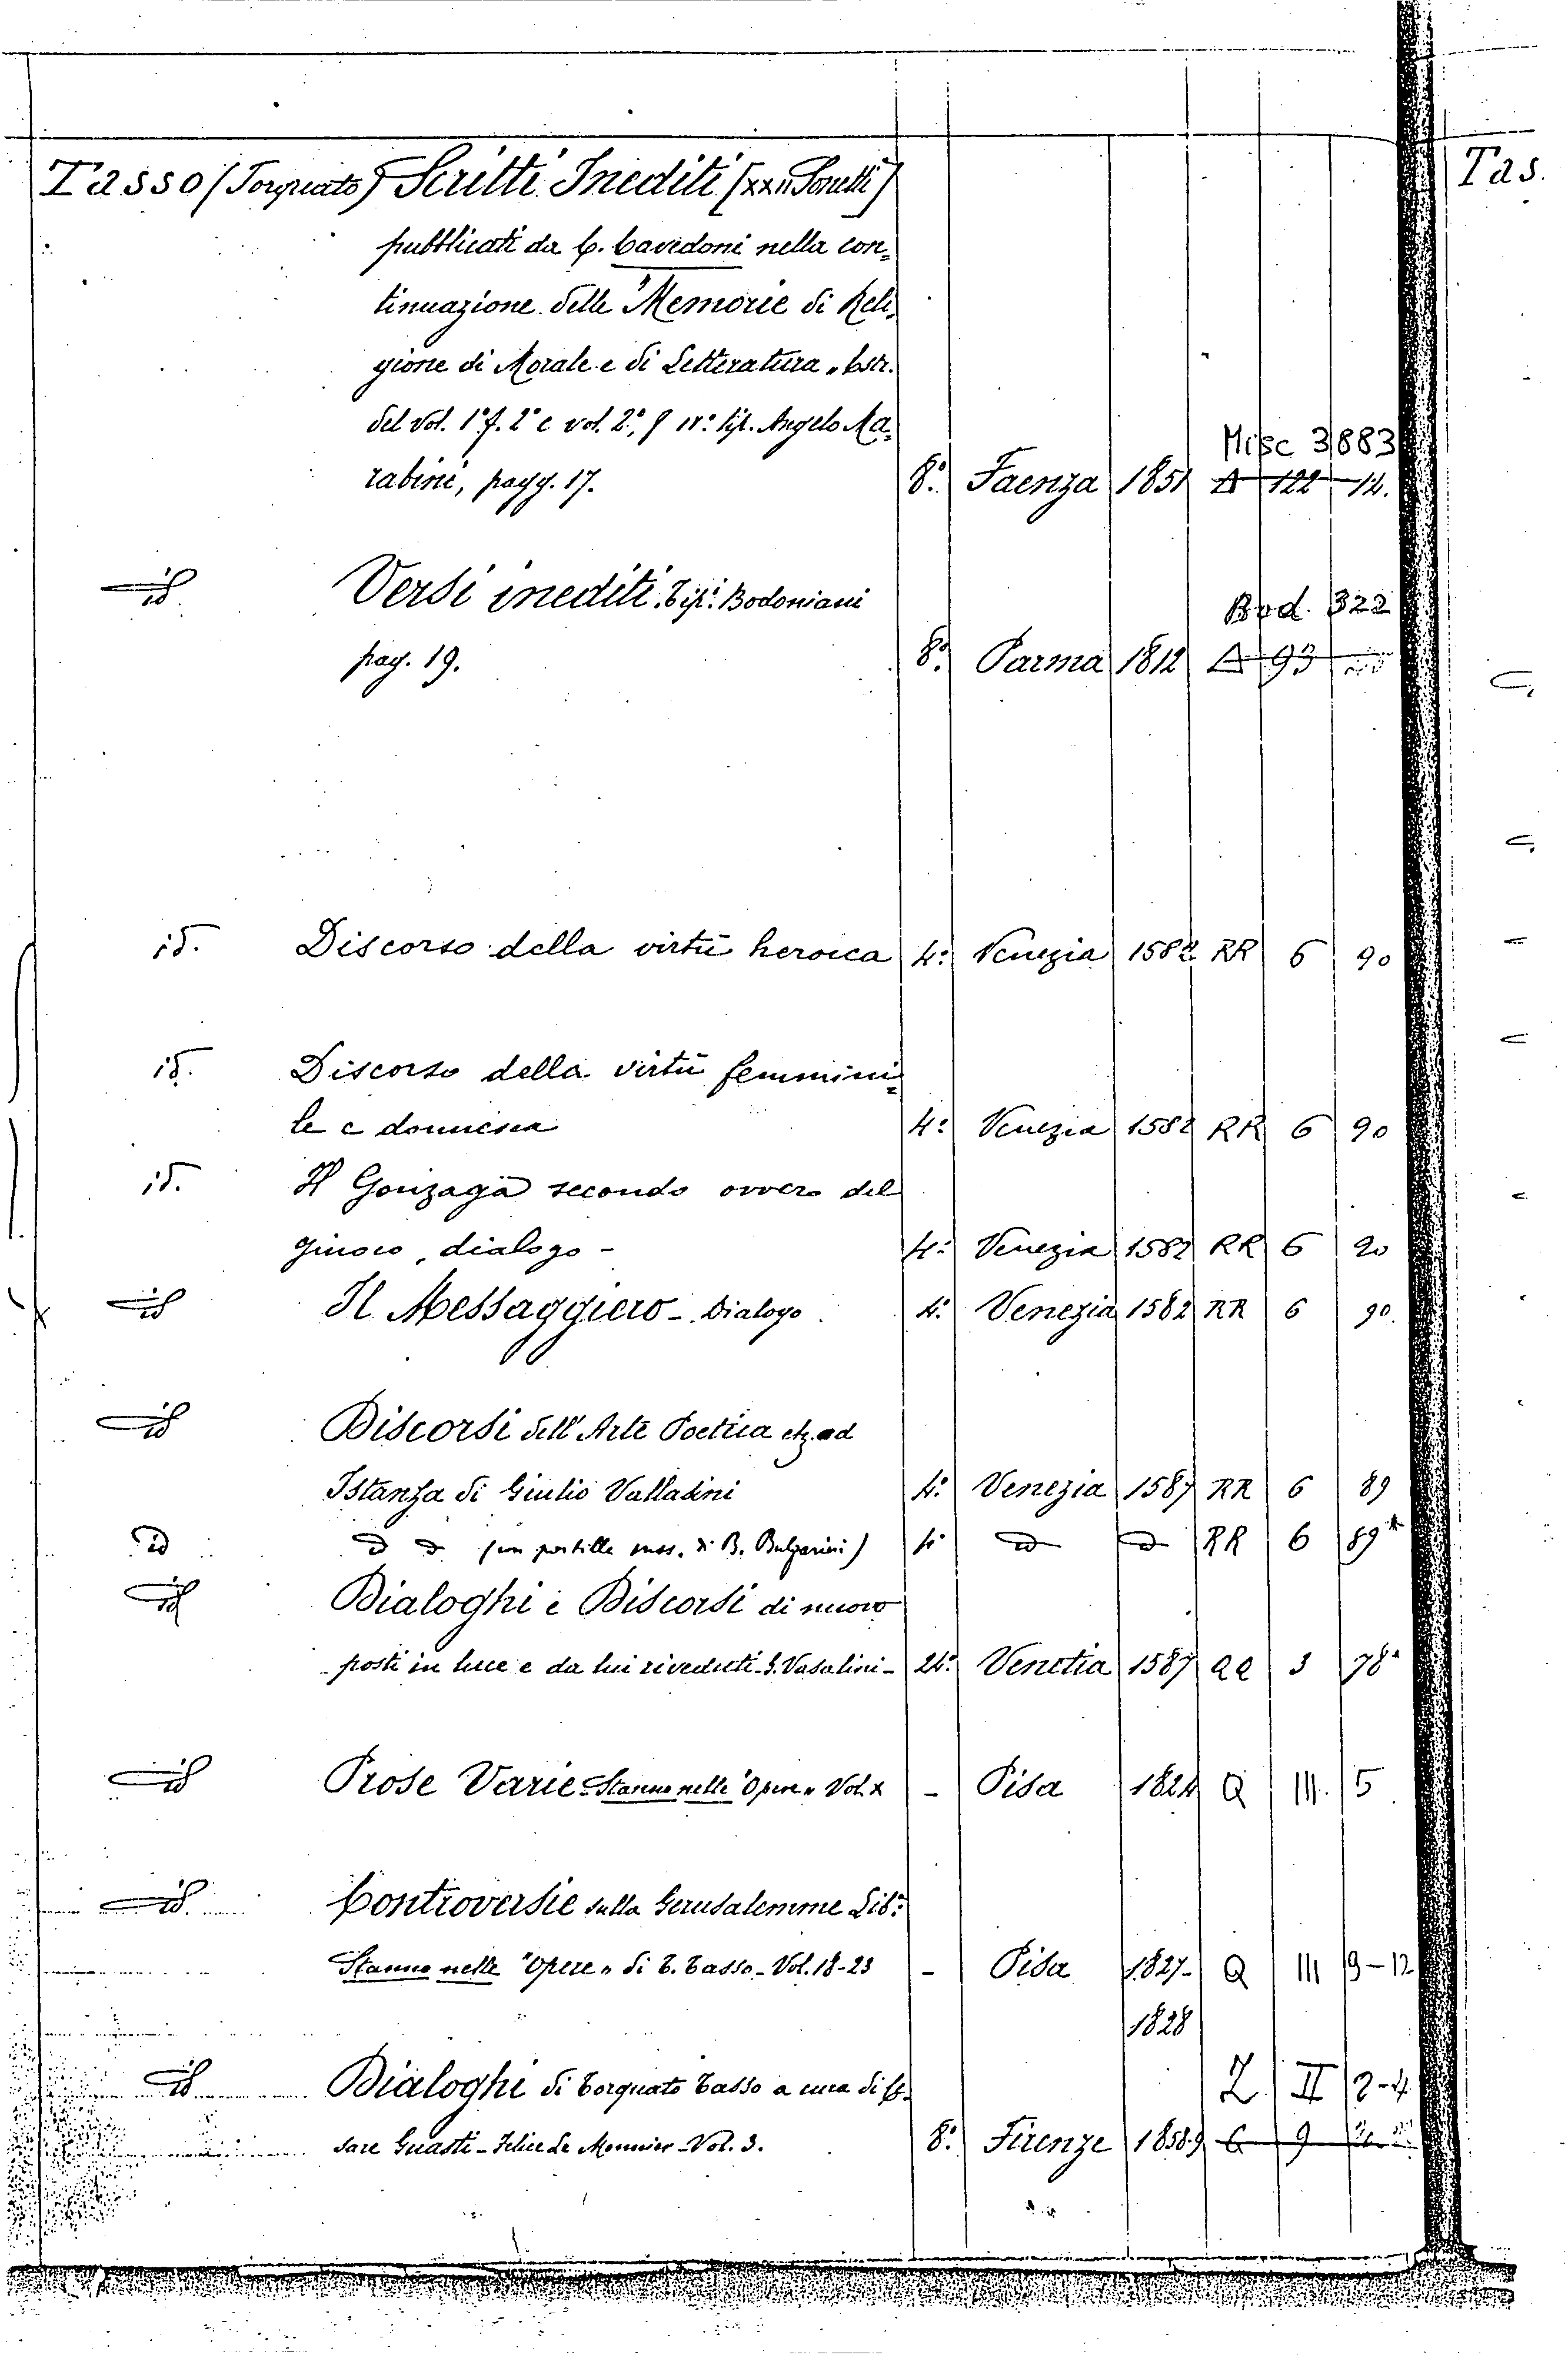 Tasso (Torquato) Scritti Inediti (XXII Sonetti)
Tas.
pubblicati da C. Cavedoni nella con=
tinuazione delle "Memorie di Reli=
gione di Morale e di Letteratura " Estr.
del vol. 1° f. 2° e vol. 2°, f 1°: tip. Angelo Ma=
Misc 3883
rabini, pagg. 17. 8°. Faenza 1851 A 122 14.
id Versi inediti. Tipi Bodoniani
Bod. 322
pag. 19. 8°. Parma 1812 A 93
id. Discorso della virtù heroica 4° Venezia 1582 RR 6 90
id. Discorso della virtù femmini=
le e donnesca 4° Venezia 1582 RR 6 90
id. Il Gonzaga secondo ovvero del
giuoco, dialogo - 4° Venezia 1582 RR 6 90
id Il Messaggiero - Dialogo 4° Venezia 1582 RR 6 90.
id Discorsi dell'Arte Poetica etz. ad
Istanza di Giulio Vassalini 4° Venezia 1587 RR 6 89
id d d (con postille mss. di B. Bulgarini) 4° d d RR 6 89*
id Dialoghi e Discorsi di nuovo
posti in luce e da lui riveduti - G. Vasalini - 24° Venetia 1587 QQ 3 78ª
id Prose Varie - Stanno nelle "Opere" Vol. X - Pisa 1824 Q III. 5
id. Controversie sulla Gerusalemme Lib:ª
Stanno nelle "Opere" di T. Tasso - Vol. 18-23 - Pisa 1827- Q III 9-12
1828
id Dialoghi di Torquato Tasso a cura di Ce=
Z II 2-4
sare Guasti - Felice Le Monnier - Vol. 3. 8° Firenze 1858-9 6 9